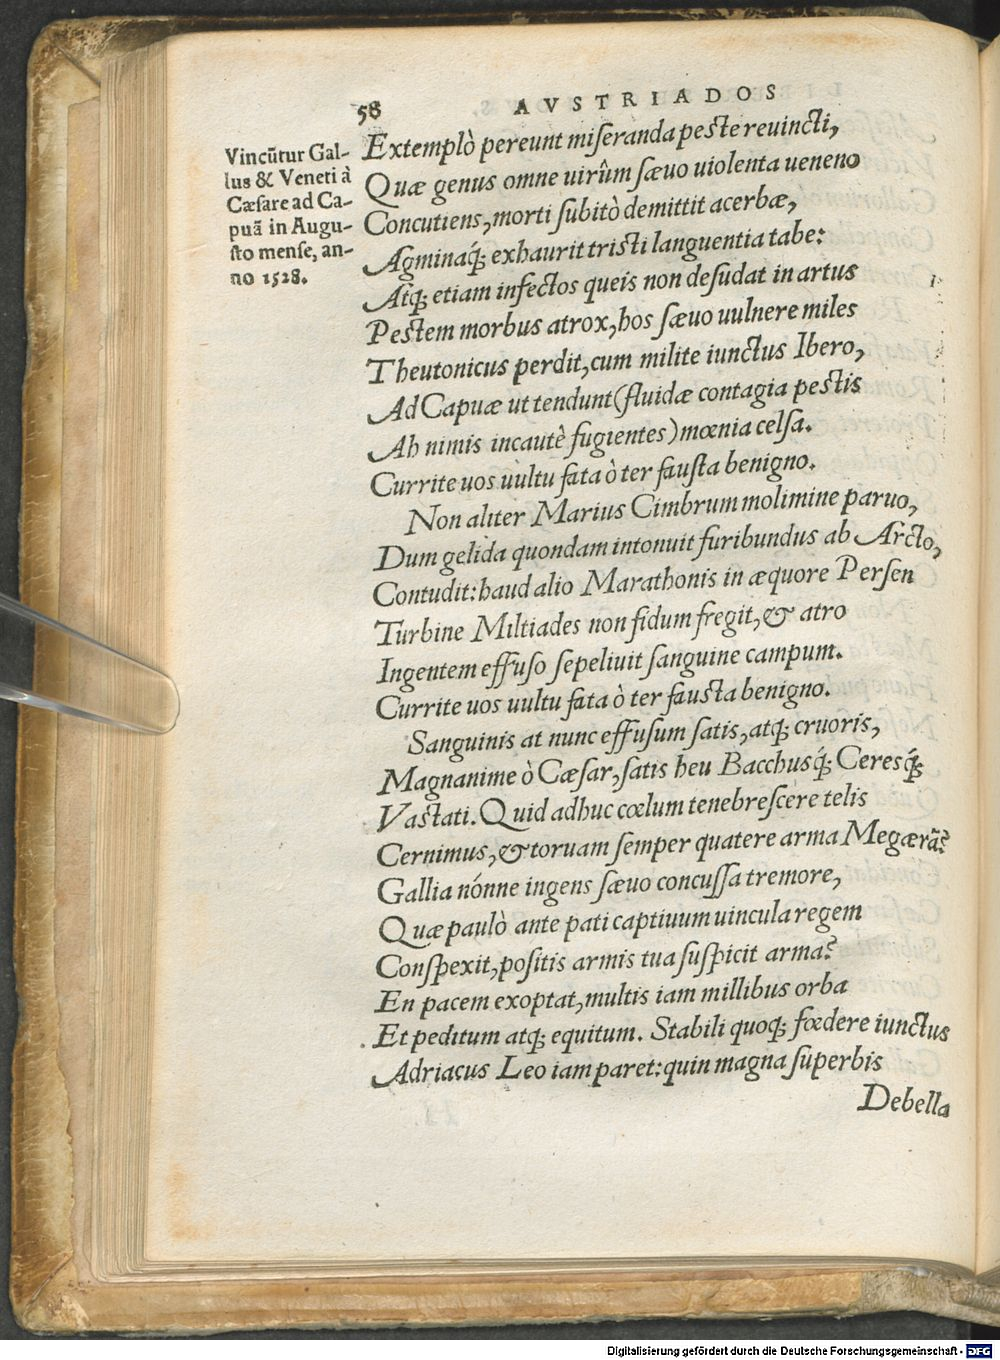 58 AVSTRIADOS
Vincũtur Gal-
lus & Veneti à
Cæsare ad Ca-
puã in Augu-
sto mense, an-
no 1528.
Extemplò pereunt miseranda peste reuincti,
Quæ genus omne uirûm sæuo uiolenta ueneno
Concutiens, morti subitò demittit acerbæ,
Agminaq́; exhaurit tristi languentia tabe:
Atq; etiam infectos queis non desudat in artus
Pestem morbus atrox, hos sæuo uulnere miles
Theutonicus perdit, cum milite iunctus Ibero,
Ad Capuæ ut tendunt (fluidæ contagia pestis
Ah nimis incautè fugientes) mœnia celsa.
Currite uos uultu fata ò ter fausta benigno.
Non aliter Marius Cimbrum molimine paruo,
Dum gelida quondam intonuit furibundus ab Arcto,
Contudit: haud alio Marathonis in æquore Persen
Turbine Miltiades non fidum fregit, & atro
Ingentem effuso sepeliuit sanguine campum.
Currite uos uultu fata ò ter fausta benigno.
Sanguinis at nunc effusum satis, atq; cruoris,
Magnanime ò Cæsar, satis heu Bacchusq́; Ceresq́;
Vastati. Quid adhuc cœlum tenebrescere telis
Cernimus, & toruam semper quatere arma Megærã?
Gallia nónne ingens sæuo concussa tremore,
Quæ paulò ante pati captiuum uincula regem
Conspexit, positis armis tua suspicit arma?
En pacem exoptat, multis iam millibus orba
Et peditum atq; equitum. Stabili quoq; fœdere iunctus
Adriacus Leo iam paret: quin magna superbis
Debella
Digitalisierung gefördert durch die Deutsche Forschungsgemeinschaft - DFG